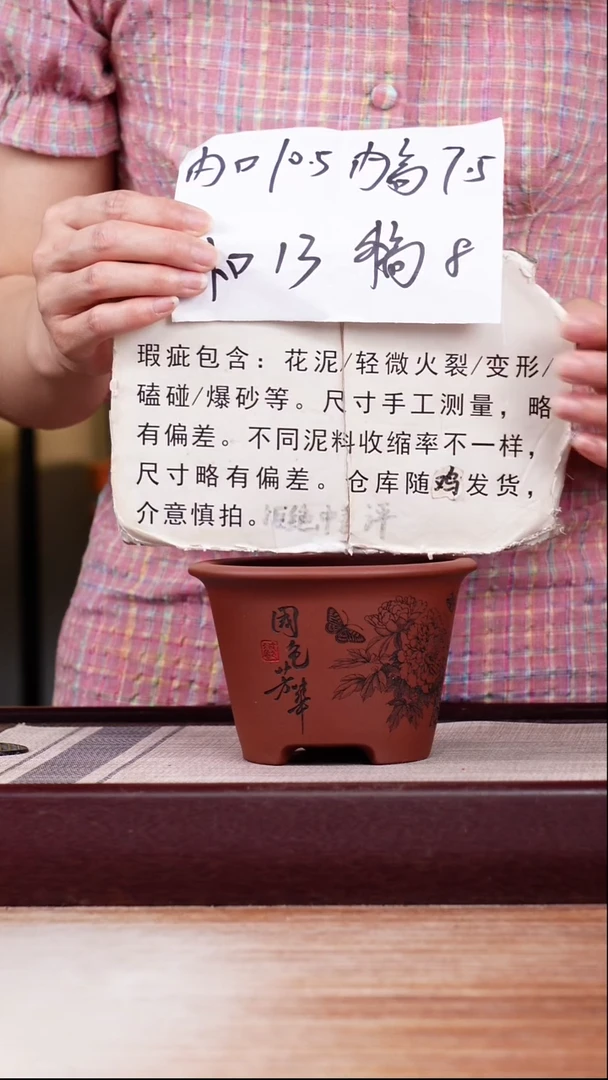 内口10.5 内高7.5
口13 高8
瑕疵包含：花泥/轻微火裂/变形/
磕碰/爆砂等。尺寸手工测量，略
有偏差。不同泥料收缩率不一样，
尺寸略有偏差。仓库随鸡发货，
介意慎拍。
国色芳华